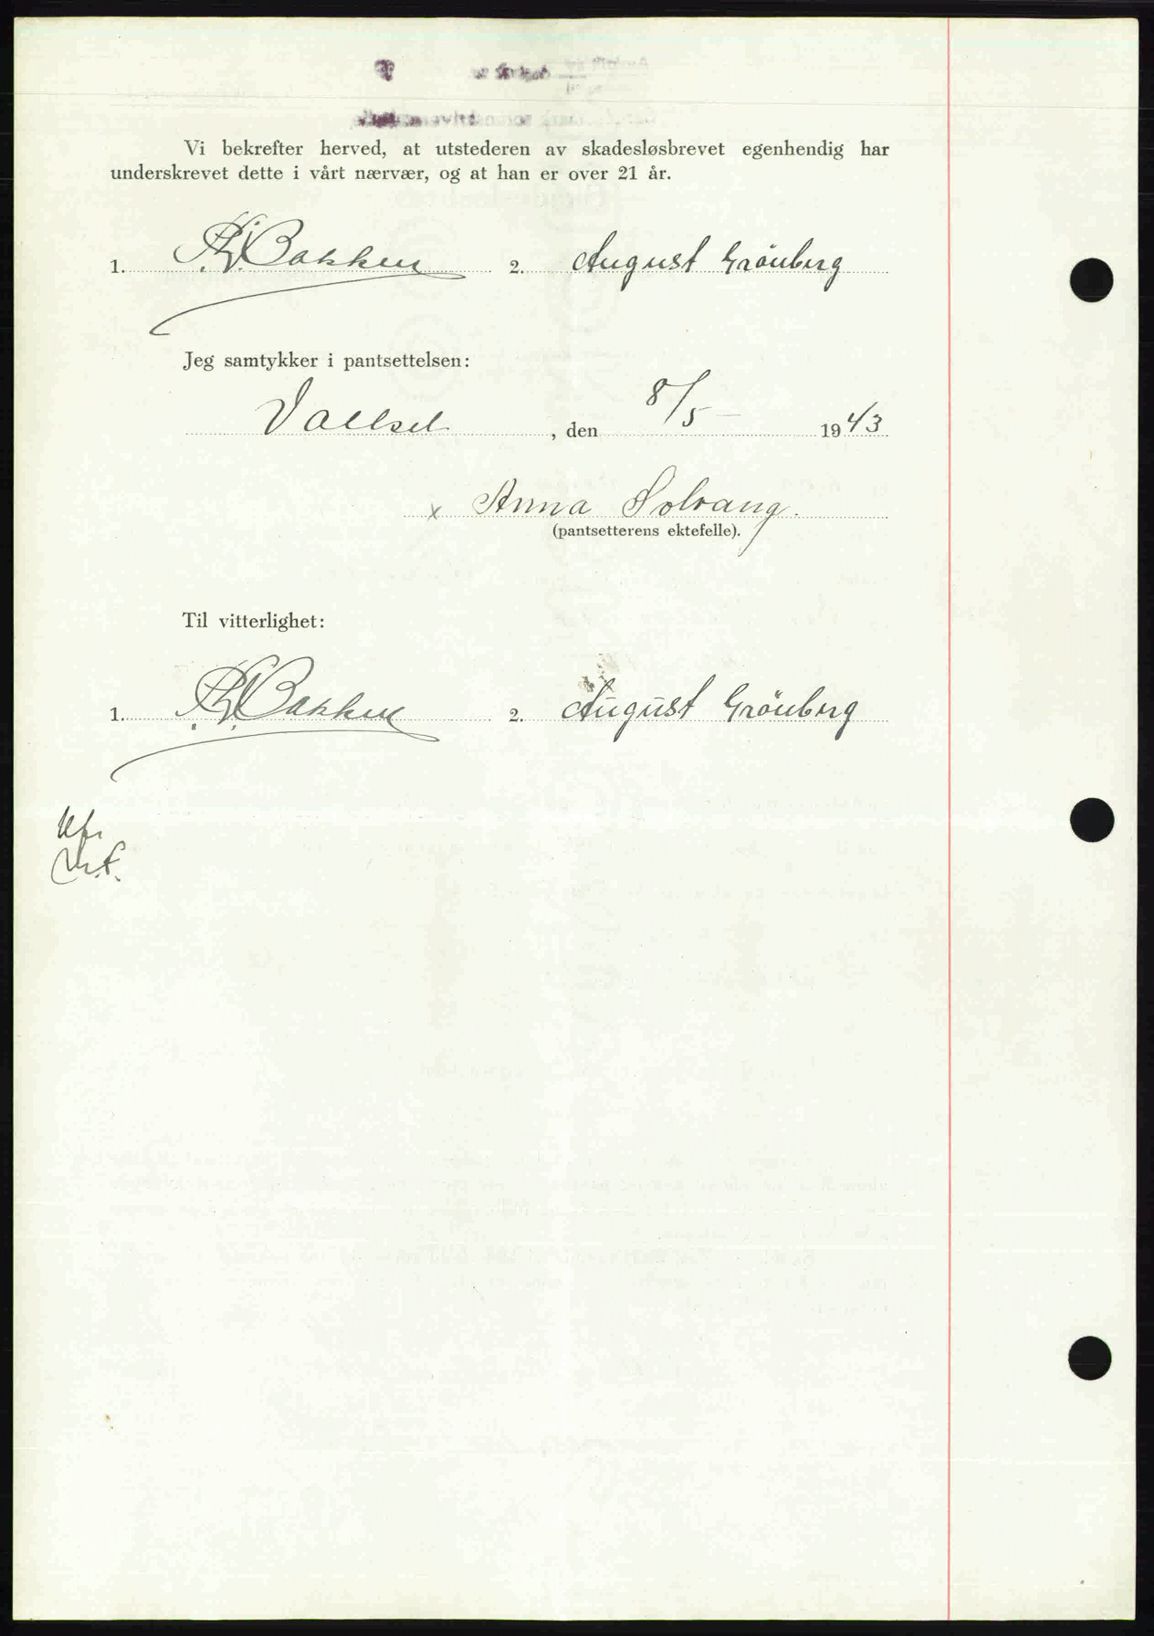 Vi bekrefter herved, at utstederen av skadesløsbrevet egenhendig har
underskrevet dette i vårt nærvær, og at han er over 21 år.
1. Bakken 2. August Grönberg
Jeg samtykker i pantsettelsen:
Vallset, den 8/5 - 1943
x Anna Solvang.
(pantsetterens ektefelle).
Til vitterlighet:
1. Bakken 2. August Grönberg